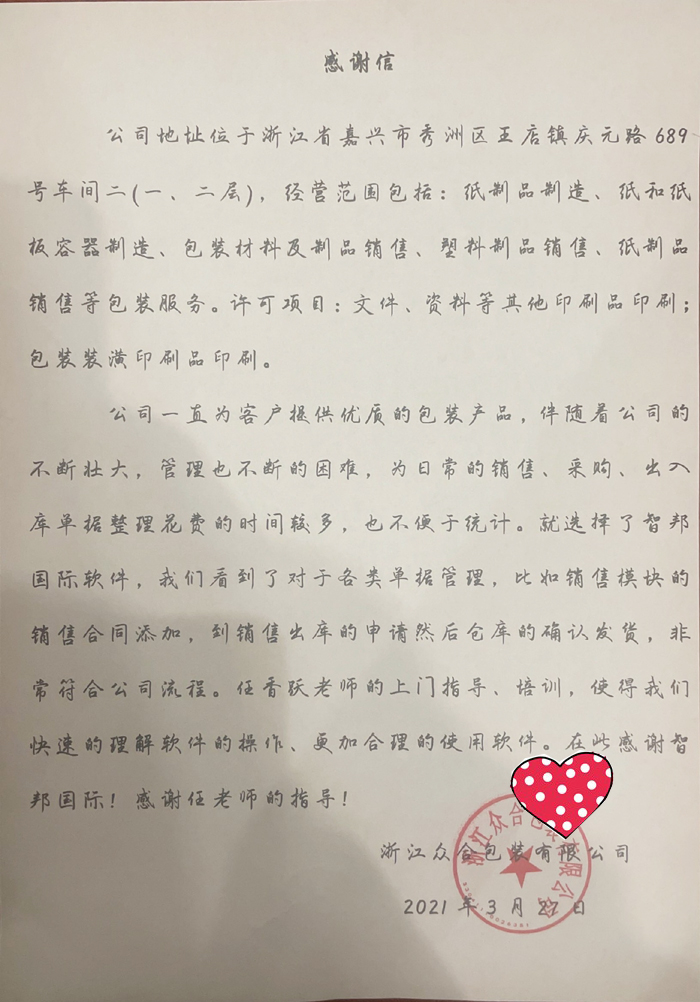 感谢信
公司地址位于浙江省嘉兴市秀洲区王店镇庆元路689
号车间二(一、二层)，经营范围包括：纸制品制造、纸和纸
板容器制造、包装材料及制品销售、塑料制品销售、纸制品
销售等包装服务。许可项目：文件、资料等其他印刷品印刷；
包装装潢印刷品印刷。
公司一直为客户提供优质的包装产品，伴随着公司的
不断壮大，管理也不断的困难，为日常的销售、采购、出入
库单据整理花费的时间较多，也不便于统计。就选择了智邦
国际软件，我们看到了对于各类单据管理，比如销售模块的
销售合同添加，到销售出库的申请然后仓库的确认发货，非
常符合公司流程。任香跃老师的上门指导、培训，使得我们
快速的理解软件的操作、更加合理的使用软件。在此感谢智
邦国际！感谢任老师的指导！
浙江众合包装有限公司
浙江众合包装有限公司
2021年3月27日